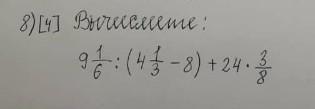 8)[4] Вычислите:
9 1/6 : (4 1/3 - 8) + 24 · 3/8